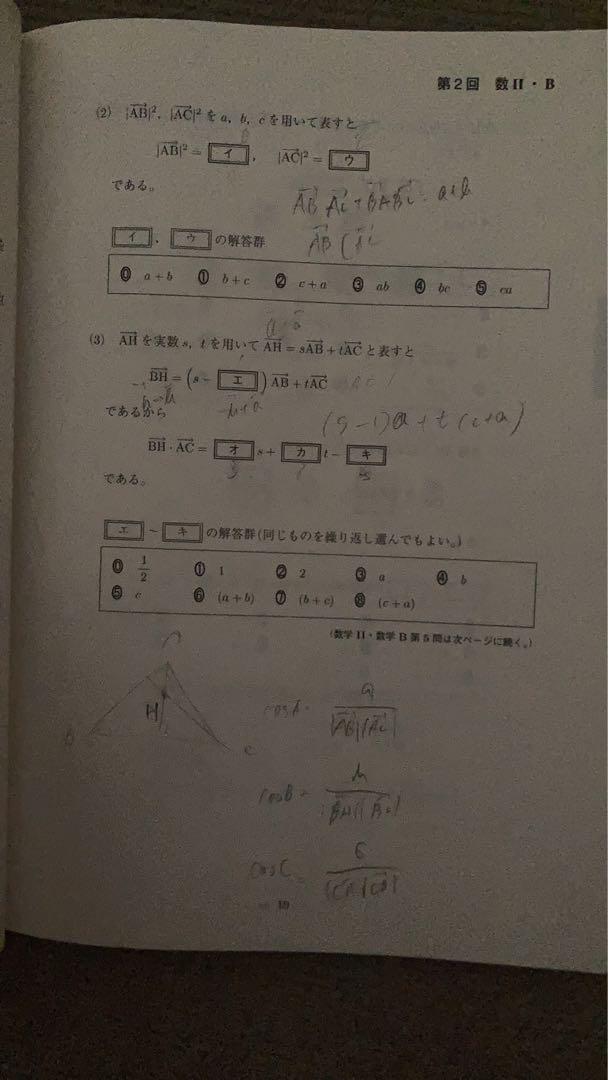 第2回 数II・B
(2) |AB|², |AC|² を a, b, c を用いて表すと
|AB|² = イ , |AC|² = ウ
である。
AB AC + BA BC = a+b
AB (AC
イ , ウ の解答群
⓪ a+b ① b+c ② c+a ③ ab ④ bc ⑤ ca
(3) AH を実数 s, t を用いて AH = sAB + tAC と表すと
BH = (s − エ ) AB + tAC
であるから
(s−1)a + t(c+a)
BH・AC = オ s + カ t − キ
である。
エ ~ キ の解答群(同じものを繰り返し選んでもよい。)
⓪ 1/2 ① 1 ② 2 ③ a ④ b
⑤ c ⑥ (a+b) ⑦ (b+c) ⑧ (c+a)
(数学 II・数学 B 第5問は次ページに続く。)
B H C
cosA = a / |AB||AC|
cosB =
cosC =
19